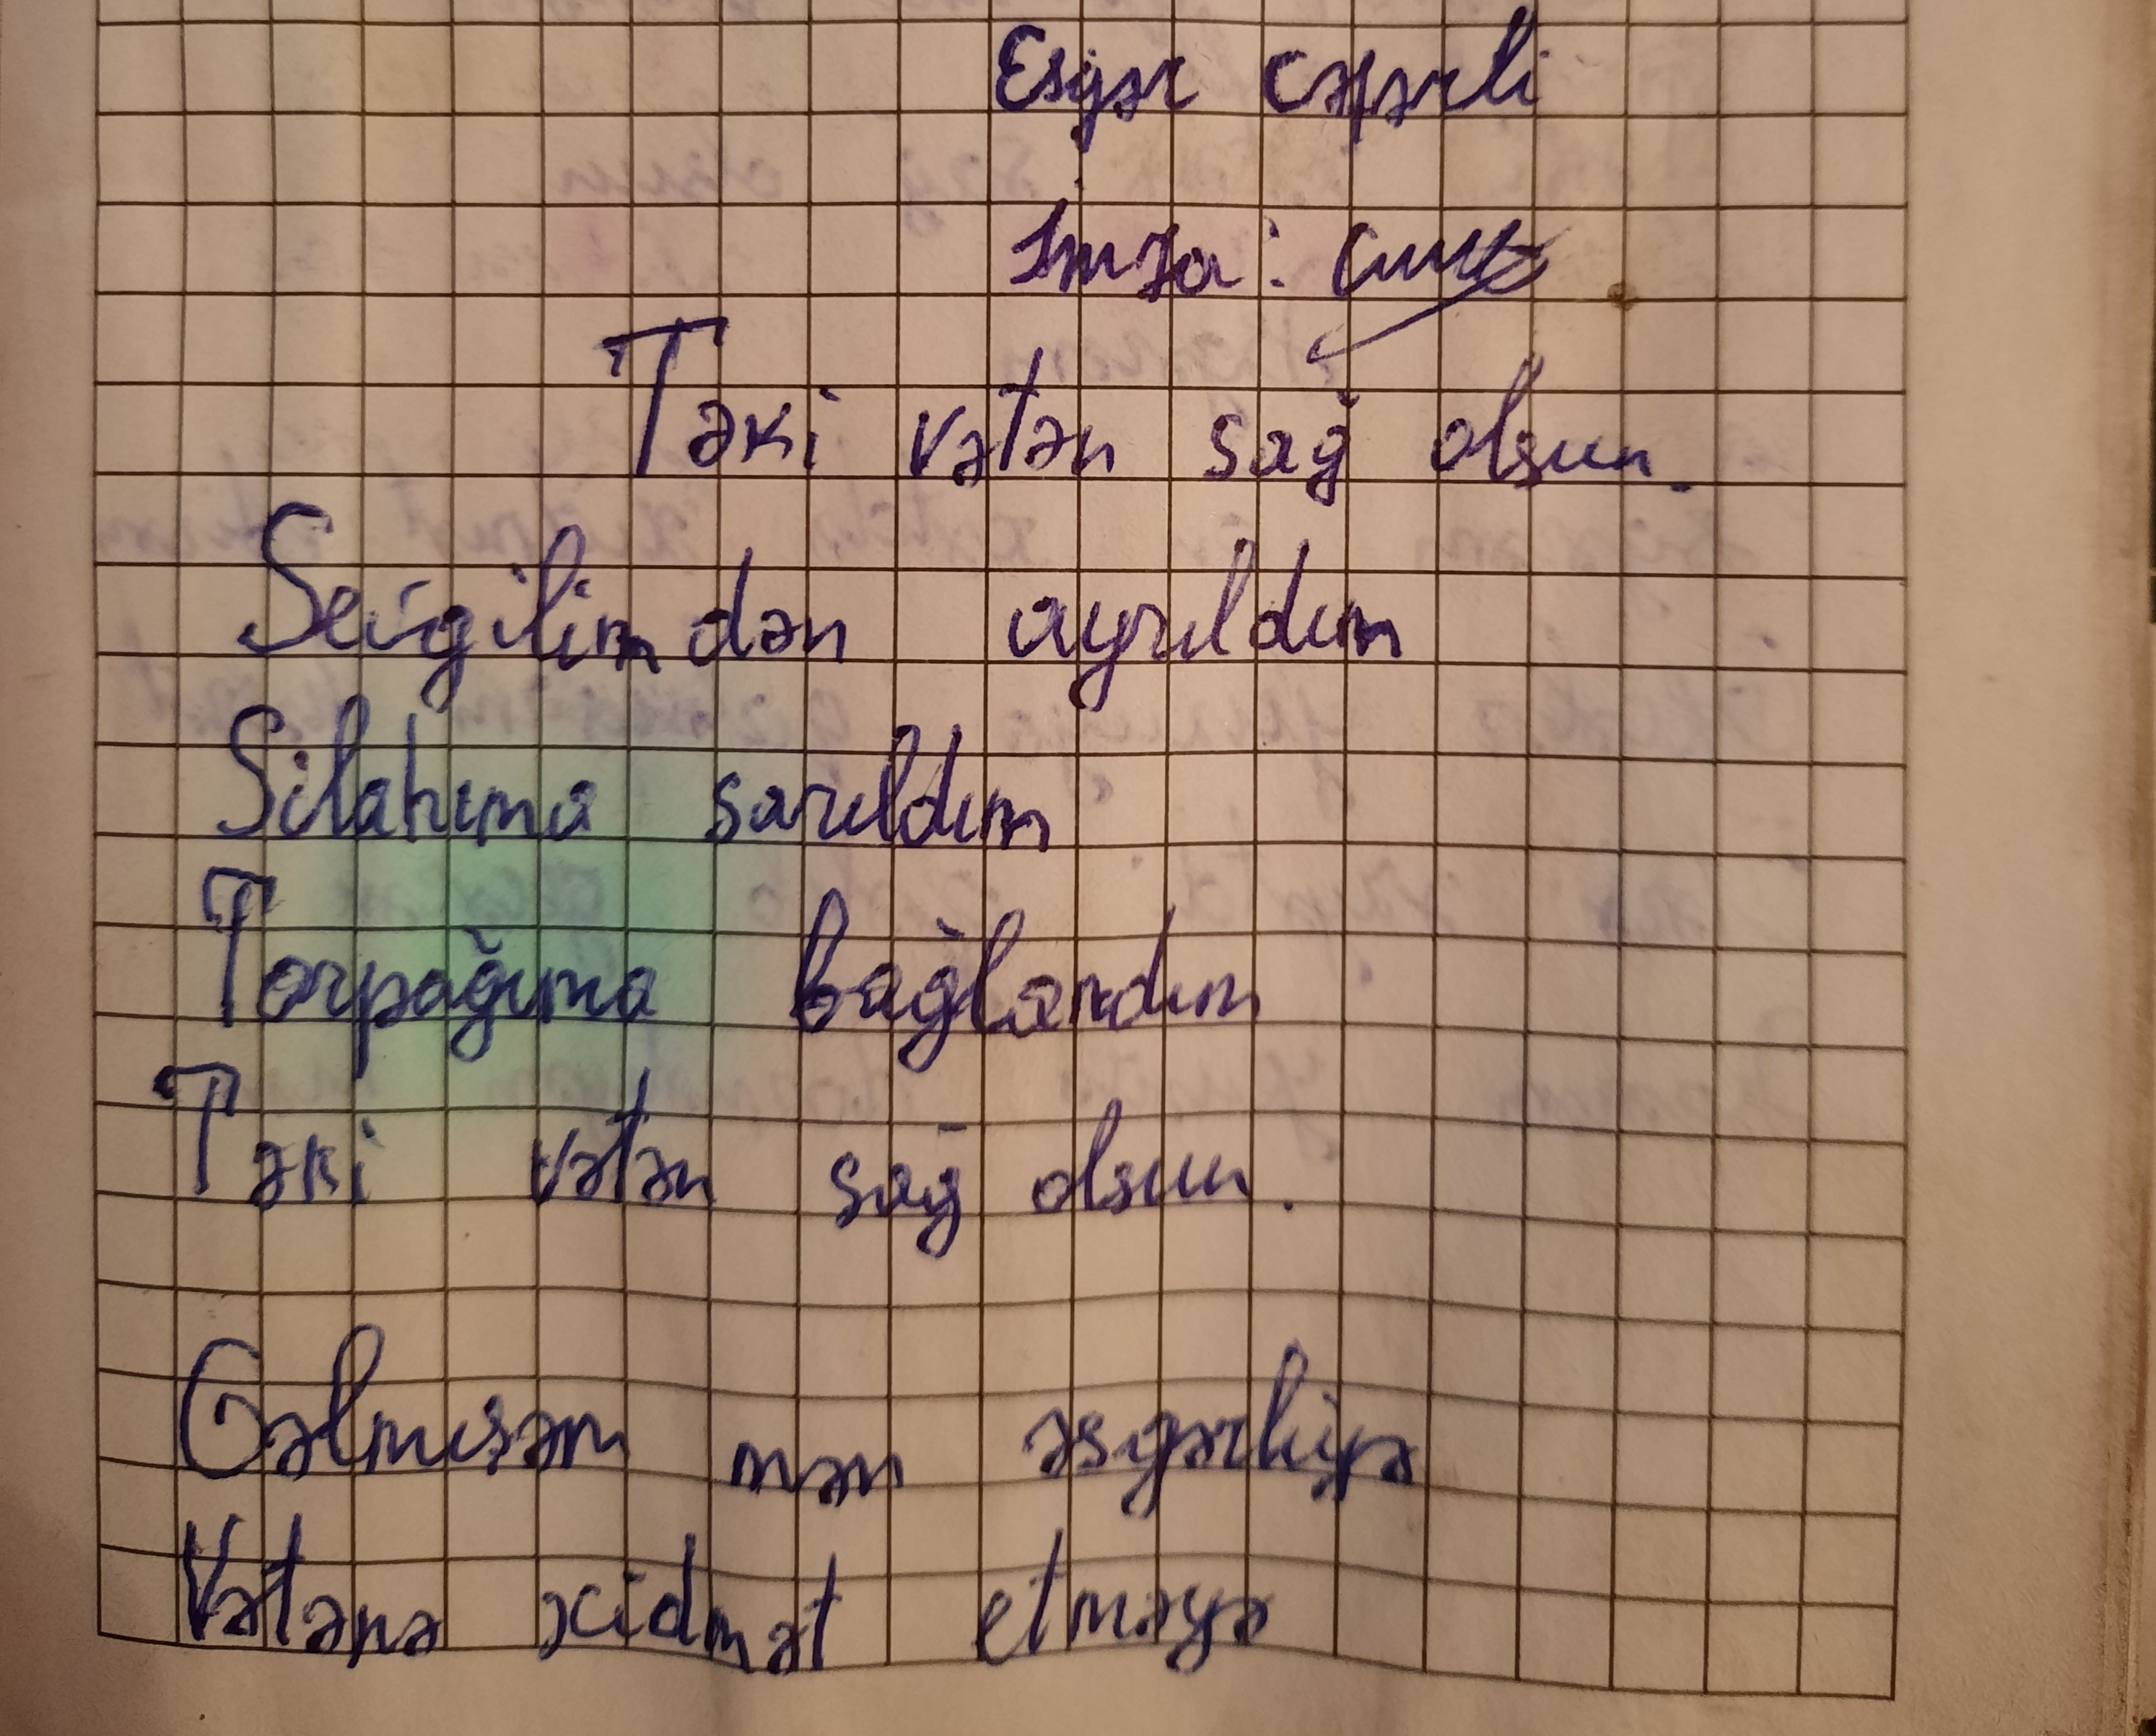 Esgər Cəfərli
İmza:
Təki vətən sağ olsun.
Sevgilimdən ayrıldım
Silahıma sarıldım
Torpağıma bağlandım
Təki vətən sağ olsun.
Gəlmişəm mən əsgərliyə
Vətənə xidmət etməyə